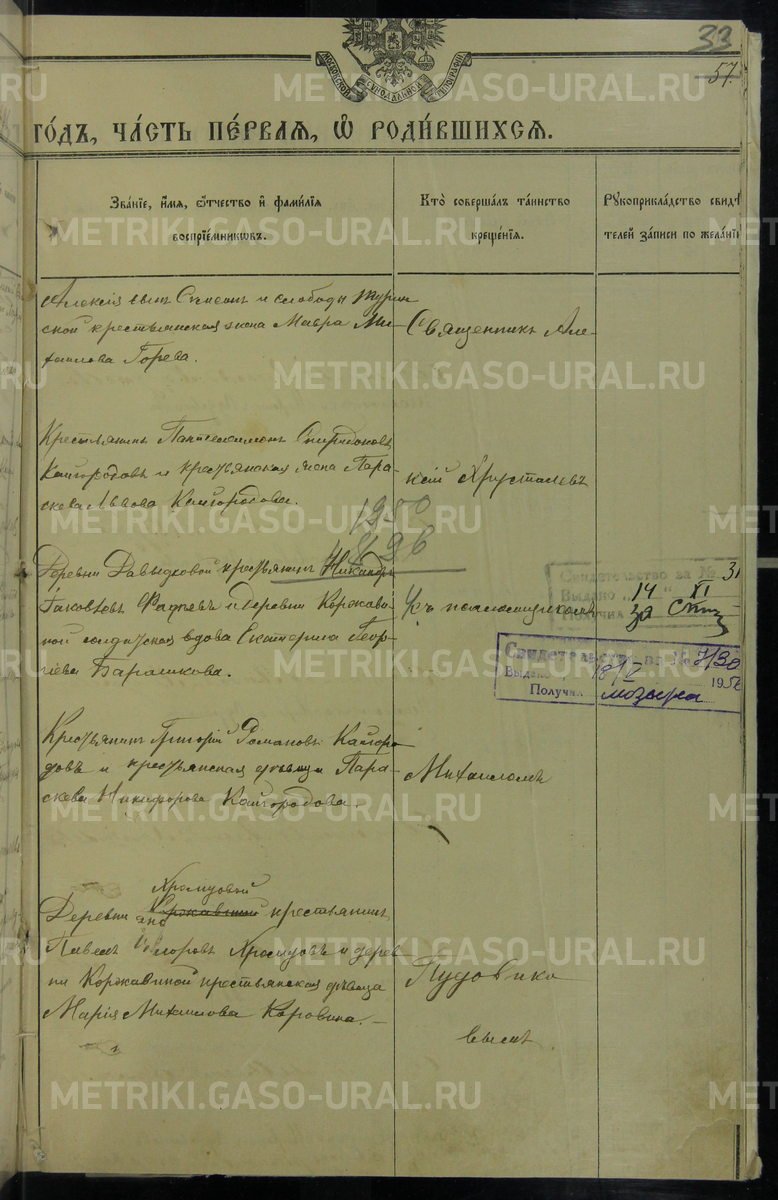 33
57.
МОСКОВСКОЙ СѴНОДАЛЬНОЙ ТИПОГРАФІИ
ГО́ДЪ, ЧА́СТЬ ПЕ́РВАЯ, Ѿ РОДИ́ВШИХСЯ.
Зва́нїе, и҆́мя, ѻ҆́тчество и҆ фами́лїя
воспрїе́мникѡвъ.
Кто̀ соверша́лъ та́инство
креще́нїя.
Рꙋкоприкла́дство свидѣ
телей за́писи по жела́нї
Алексій и слободы Турин
ской крестьянская жена Мавра Ми-
хаилова Горева.
Священникъ Але-
Крестьянинъ Пантелеимонъ Спиридоновъ
Кайгородовъ и крестьянская жена Пара-
скева Львова Кайгородова.
ксій Хрусталевъ
1950
896
Деревни Давыдковой крестьянинъ Никандръ
Іаковлевъ и деревни Коржави-
ной солдатская вдова Екатерина Геор-
гіева Барашкова.
съ псаломщикомъ
Свидетельство за № 31
Выдано „14 " XI
Получил за
Свидетельство за № 7/30
Выдано 18/I 1956
Получил
Крестьянинъ Григорій Романовъ Кайгоро
довъ и крестьянская дѣвица Пара-
скева Никифорова Кайгородова.
Михаиломъ
Хромцовой
Деревни Коржавиной крестьянинъ
Павелъ Хромцовъ и дерев
ни Коржавиной крестьянская дѣвица
Марія Михаилова Коровина.
Пудовико
вымъ
METRIKI.GASO-URAL.RU